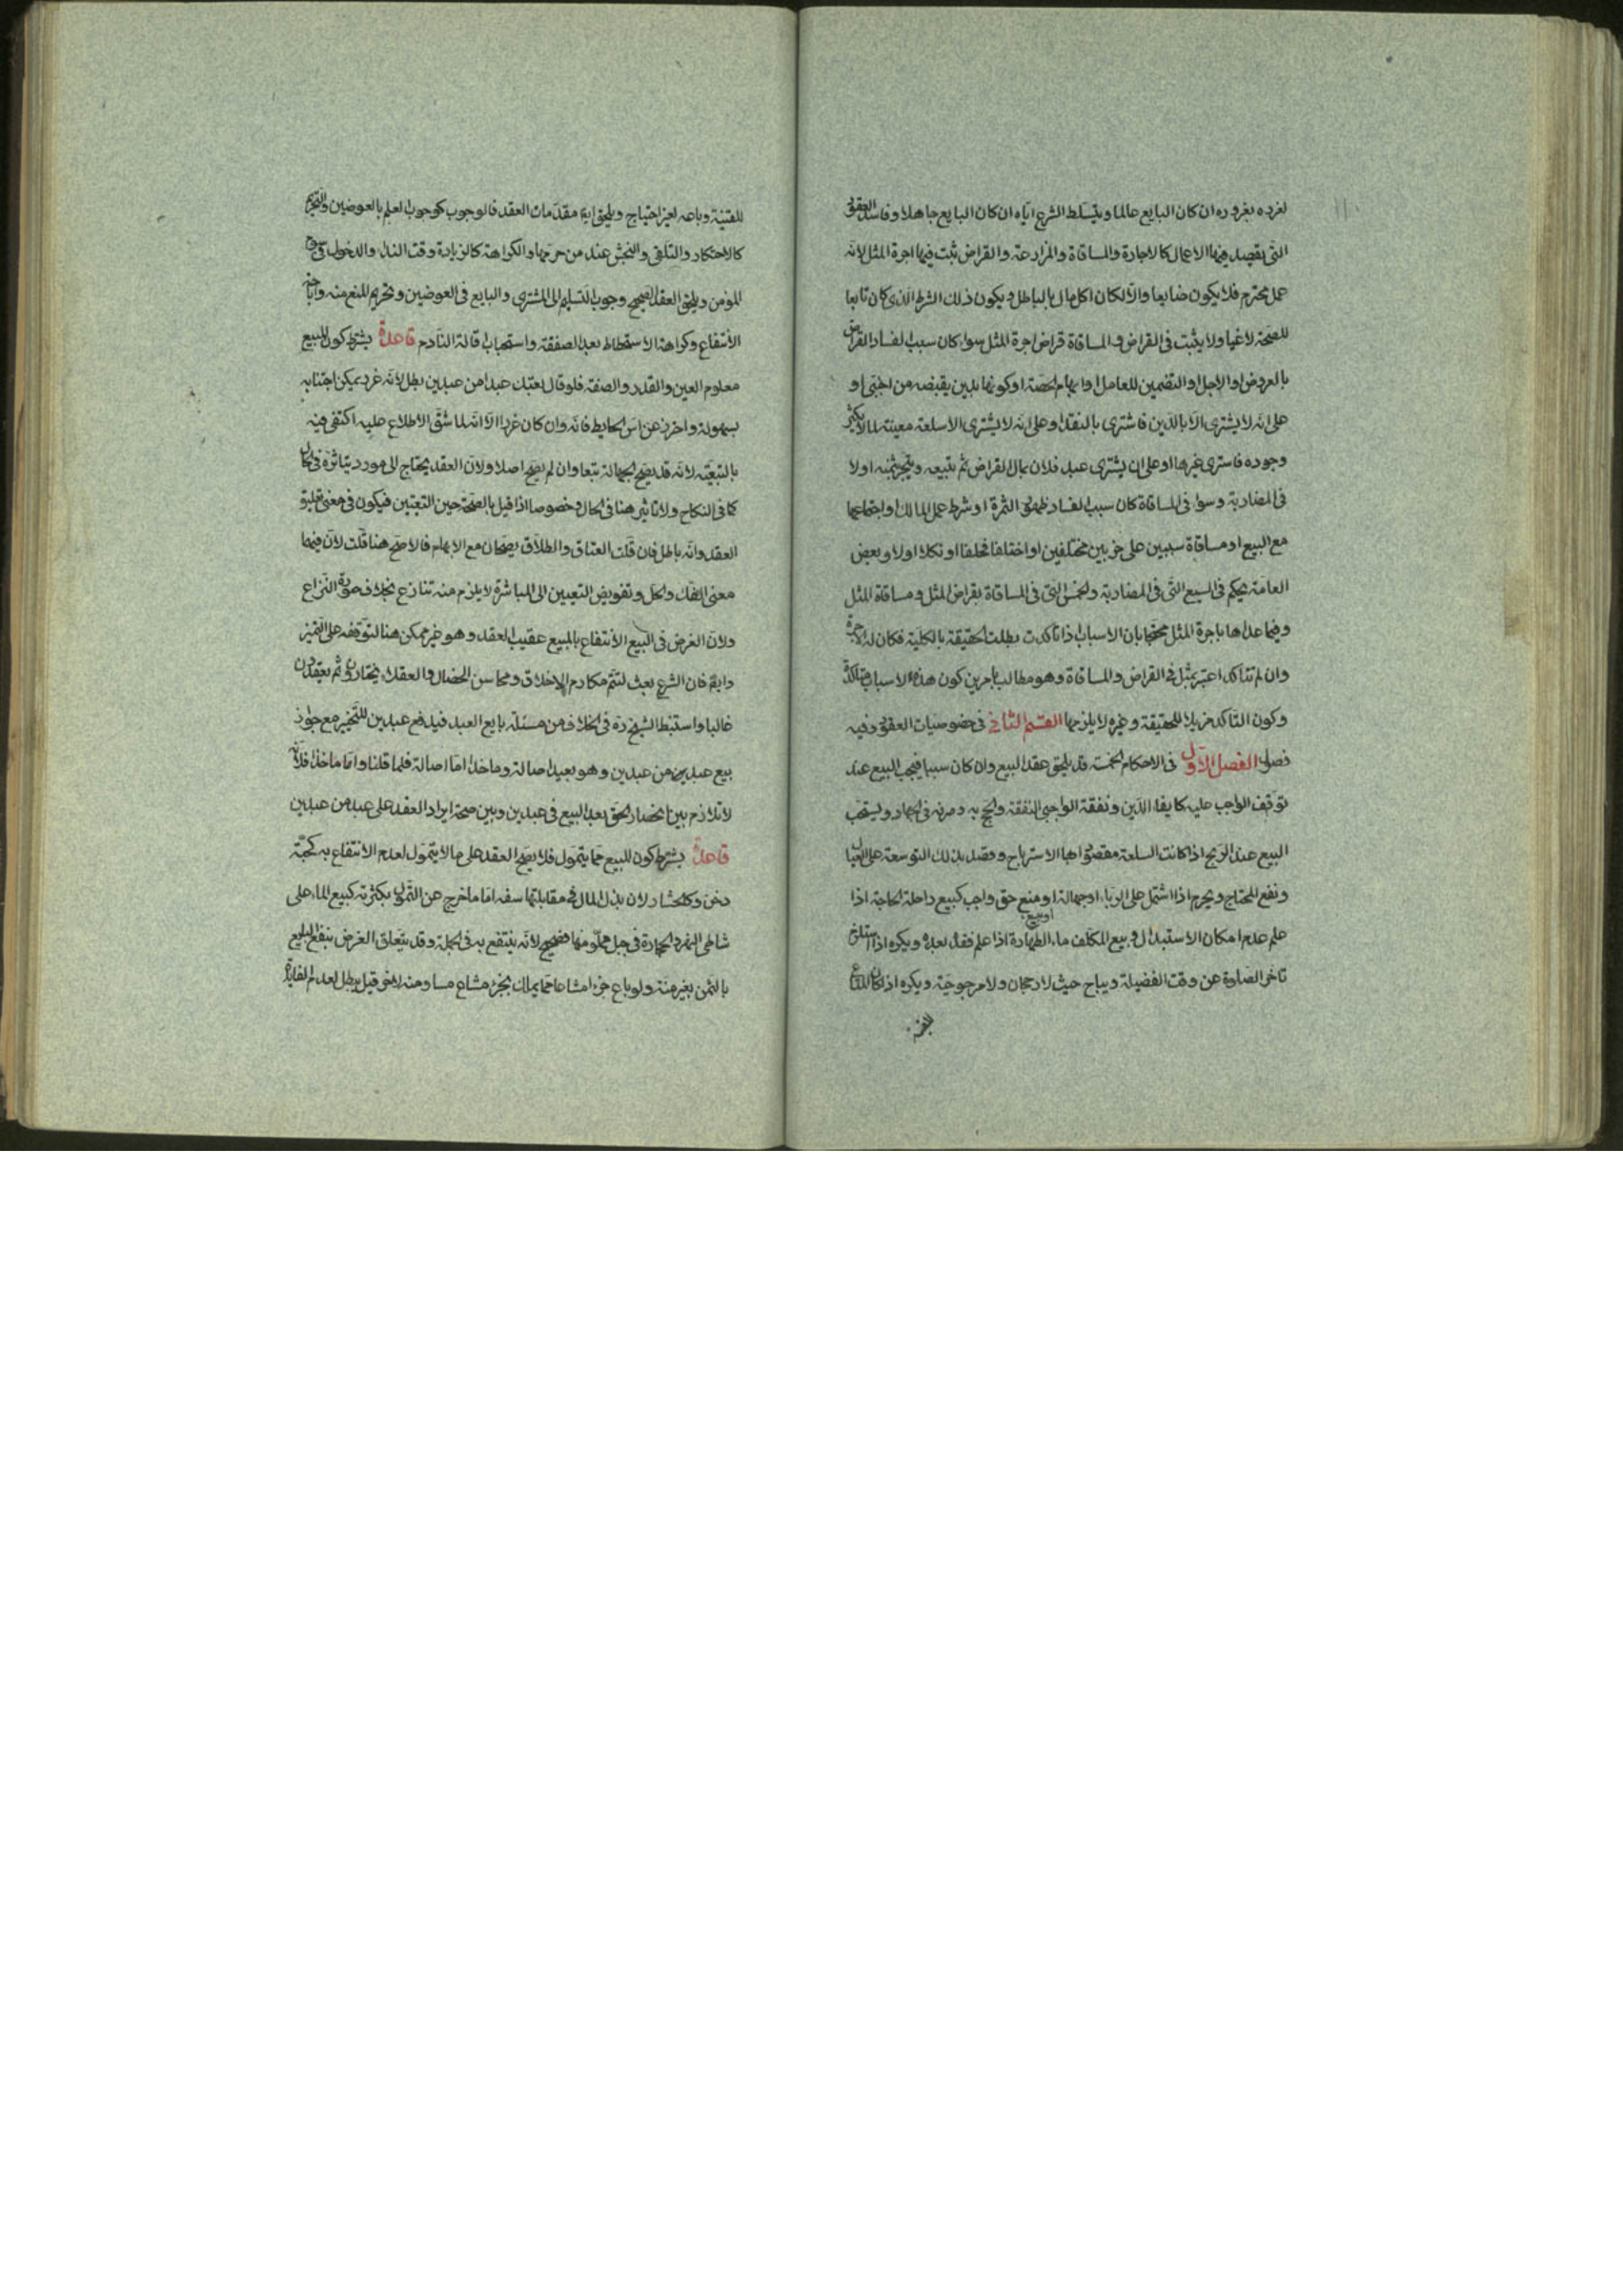 لغرده بغروره ان كان البايع عالما وبتسلط الشرع اياه ان كان البايع جاهلا وفاسد العقود
التى يقصد فيها الاعمال كالاجارة والمساقاة والمزارعة والقراض يثبت فيها اجرة المثل لانه
عمل محترم فلا يكون ضايعا والا لكان اكل مال بالباطل ويكون ذلك الشرط الذى كان تابعا
للصحة لاغيا ولا يثبت فى القراض والمساقاة قراض اجرة المثل سواء كان سبب الفساد القراض
بالعروض او الاجل او التضمين للعامل او ابهام الحصة او كونها بدين يقبضه من اجنبى او
على انه لا يشترى الا بالدين فاشترى بالنقد او على انه لا يشترى الا سلعة معينة لما لا يكثر
وجوده فاشترى غيرها او على ان يشترى عبد فلان بمال القراض ثم يبيعه ويتجر بثمنه او لا
فى المضاربة وسواء فى المساقاة كان سبب الفساد ظهور الثمرة او شرط عمل المالك او اجتماعها
مع البيع او مساقاة سنين على جزءين مختلفين او اختلفا فحلفا او نكلا او لا وبعض
العامة يحكم فى السبع التى فى المضاربة والخمس التى فى المساقاة بقراض المثل ومساقاة المثل
وفيما عداها باجرة المثل محتجا بان الاسباب اذا تاكدت بطلت الحقيقة بالكلية فكان له الاجرة
وان لم تتاكد اعتبر بمثل فى القراض والمساقاة وهو مطالب بامرين كون هذه الاسباب متاكدة
وكون التاكد مزيلا للحقيقة وغيره لا يلزمها القسم الثانى فى خصوصيات العقود وفيه
فصول الفصل الاول فى الاحكام الخمسة قد يلحق عقد البيع وان كان سببا فيجب البيع عند
توقف الواجب عليه كايفاء الدين ونفقة الواجبى النفقة والحج به وصرفه فى الجهاد ويستحب
البيع عند الربح اذا كانت السلعة مقصودا بها الاسترباح وقصد بذلك التوسعة على العيال
ونفع المحتاج ويحرم اذا اشتمل على الربا او جهالة او منع حق واجب كبيع راحلة الحاجة اذا
علم عدم امكان الاستبدال او بيع المكلف ماء الطهارة اذا علم فقد بعده ويكره اذا استلزم
تاخر الصلوة عن وقت الفضيلة ويباح حيث لا رجحان ولا مرجوحية ويكره اذا كان المتاع
للقنية وباعه لغير احتياج ويلحق ايضا مقدمات العقد فالوجوب كوجوب العلم بالعوضين والتحريم
كالاحتكار والتلقى والنجش عند من حرمها والكراهة كالزيادة وقت النداء والدخول فى سوم
المؤمن ويلحق العقد الصحيح وجوب التسليم الى المشترى والبايع فى العوضين وتحريم المنع منه واباحة
الانتفاع وكراهة الاستحطاط بعد الصفقة واستحباب اقالة النادم قاعدة يشترط كون المبيع
معلوم العين والقدر والصفة فلو قال بعتك عبدا من عبدين بطل لانه غرر يمكن اجتنابه
بسهولة واحترز عن اس الحايط فانه وان كان غررا الا انه لما شق الاطلاع عليه اكتفى فيه
بالتبعية لانه قد يصح الجهالة تبعا وان لم يصح اصلا ولان العقد يحتاج الى مورد يتاثر فى الحال
كما فى النكاح ولا تاثير هنا فى الحال وخصوصا اذا قيل بالصحة حين التعيين فيكون فى معنى تعليق
العقد وانه باطل فان قلت العتاق والطلاق يصحان مع الابهام فلا صح هنا قلت لان فيهما
معنى الفك والحل وتفويض التعيين الى المباشر لا يلزم منه تنازع بخلاف صورة النزاع
ولان الغرض فى البيع الانتفاع بالمبيع عقيب العقد وهو غير ممكن هنا لتوقفه على التميز
وايضا فان الشرع بعث لتتم مكارم الاخلاق ومحاسن الخصال والعقلاء يختارون ثم يعقدون
غالبا واستنبط الشيخ ره فى الخلاف من مسئلة بايع العبد فيدفع عبدين للتخيير مع جواز
بيع عبد من عبدين وهو بعيد اصالة وماخذا اما اصالة فلما قلنا واما ماخذا فلانه
لا تلازم بين انحصار الحق بعد البيع فى عبدين وبين صحة ايراد العقد على عبد من عبدين
قاعدة يشترط كون المبيع مما يتمول فلا يصح العقد على ما لا يتمول لعدم الانتفاع به كحبة
دخن وكالحشار لان بذل المال فى مقابلتها سفه اما ما خرج عن التمول بكثرته كبيع الماء على
شاطى النهر والحجارة فى جبل مملو منها فصحيح لانه ينتفع به فى الجملة وقد يتعلق الغرض بنفع البايع
بالثمن بغير منة ولو باع جزءا مشاعا مما يملك بجزء مشاع مساو منه لاخر قيل يبطل لعدم الفايدة